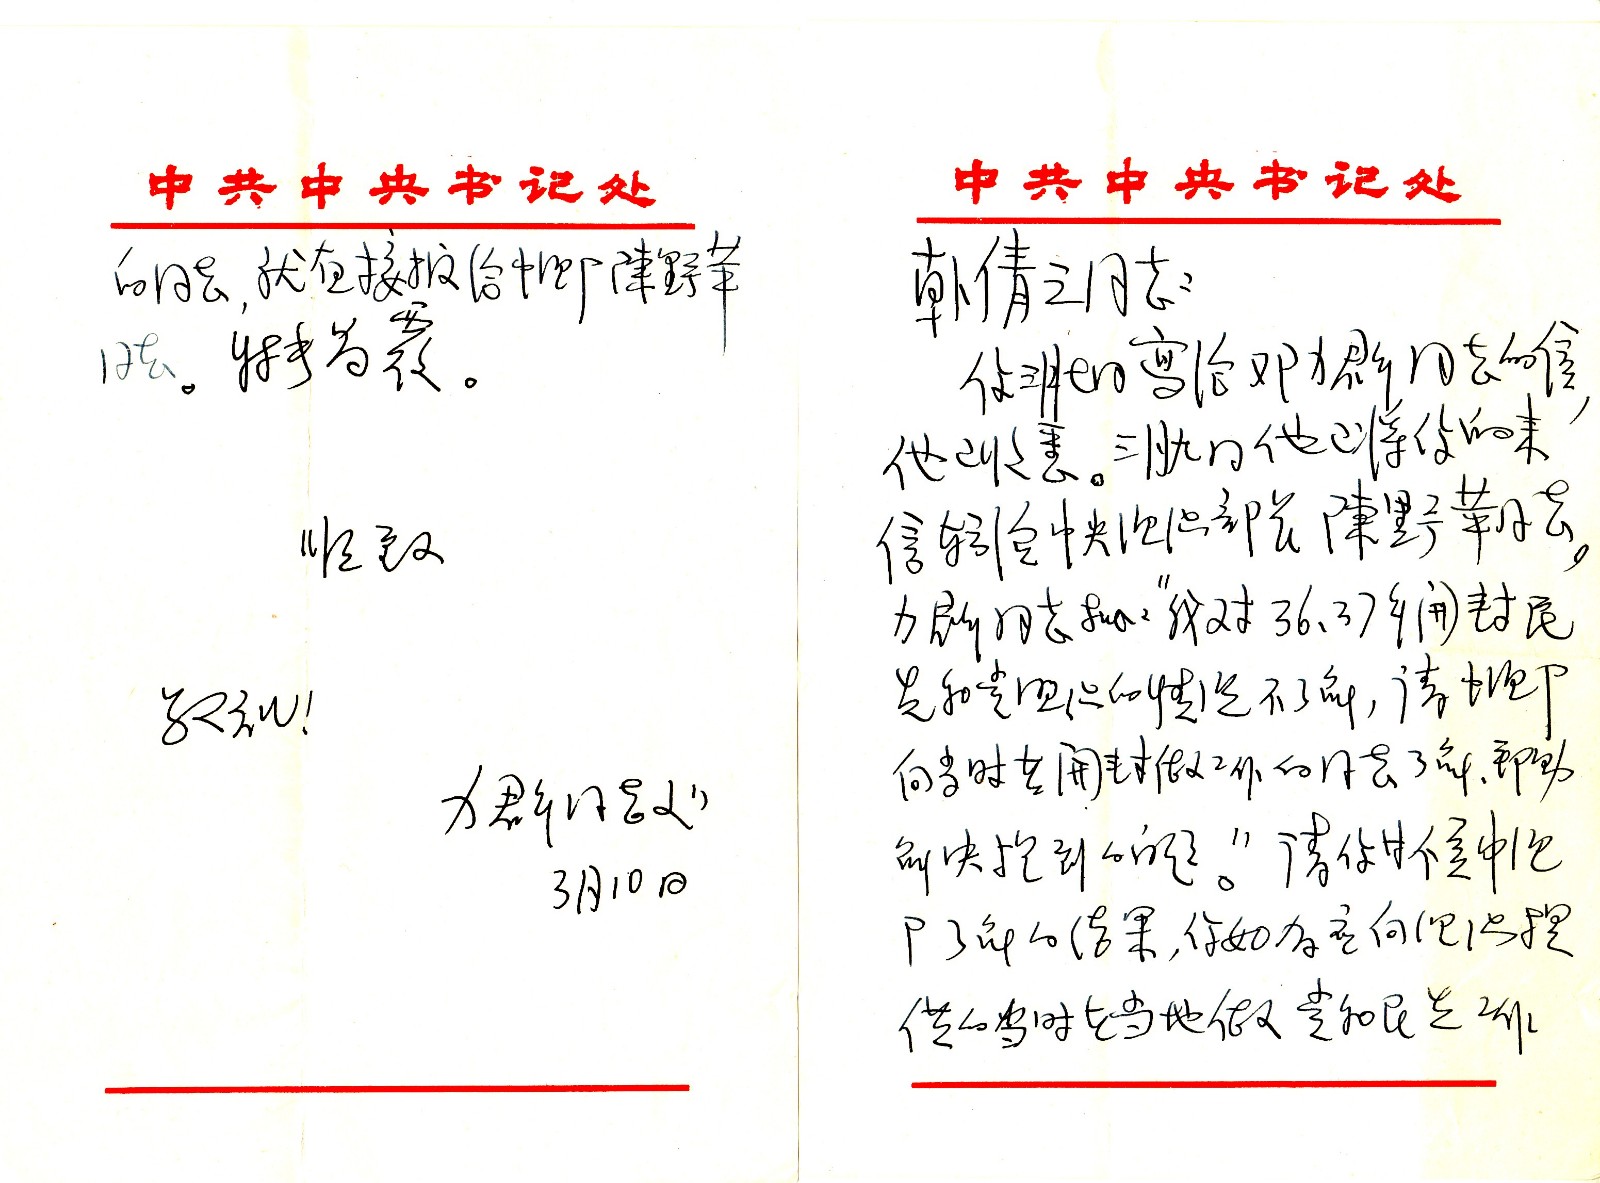 中共中央书记处
韩倩之同志：
你三月七日写给邓力群同志的信，
他已收悉。三月九日他已将你的来
信转给中央组织部长陳野苹同志。
力群同志批：“我对36、37年开封民
先和党组织的情况不了解，请中组部
向当时在开封做工作的同志了解、帮助
解决提到的问题。”请你等候中组
部了解的结果，你如有意向组织提
供的当时在当地做党和民先工作
中共中央书记处
的同志，就直接报给中组部陳野苹
同志。特此为覆。
顺致
敬礼！
力群同志处
3月10日